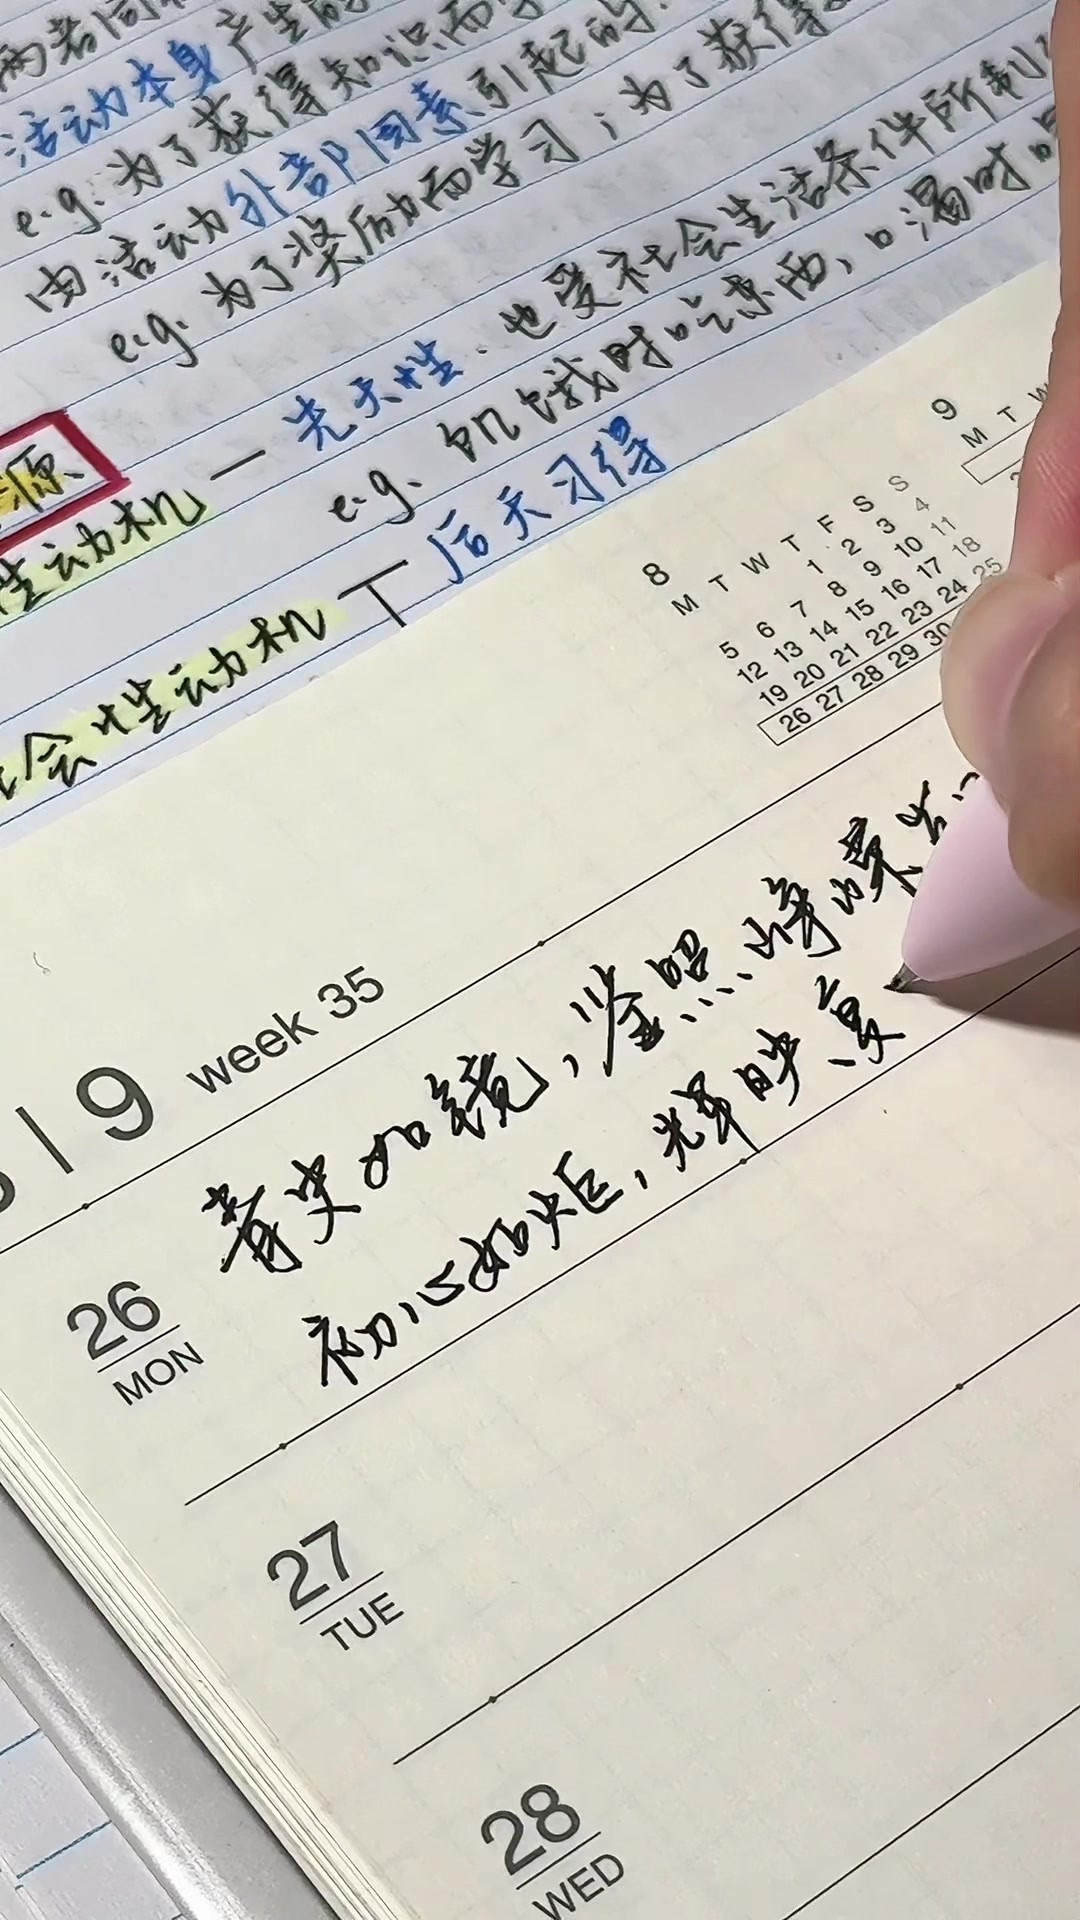 两者同
活动本身产生的
e.g. 为了获得知识而学
由活动外部因素引起的
e.g. 为了奖励而学习；为了获得
源
生动机 — 先天性、也受社会生活条件所制
e.g. 饥饿时吃东西，口渴时
会性动机 — 后天习得
8
M T W T F S S
1 2 3 4
5 6 7 8 9 10 11
12 13 14 15 16 17 18
19 20 21 22 23 24 25
26 27 28 29 30
9
M T W
| 9 week 35
26
MON
青史如镜，鉴照峥嵘岁
初心如炬，辉映复
27
TUE
28
WED